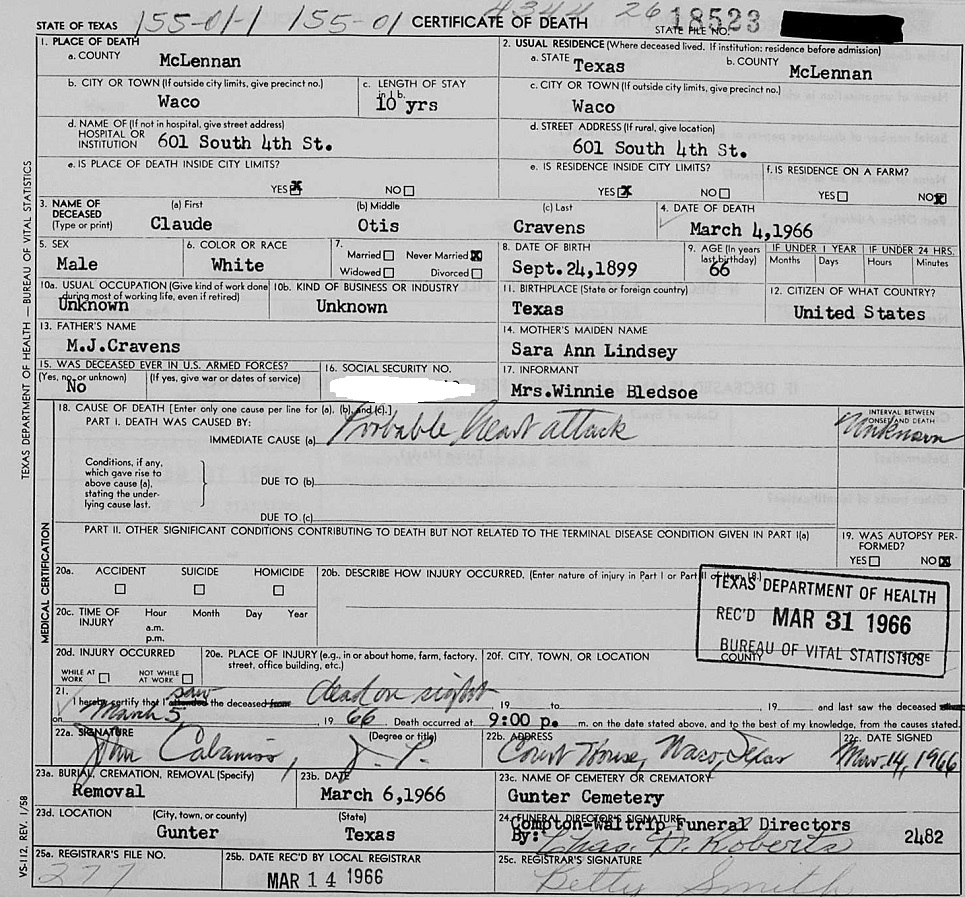 STATE OF TEXAS 155-01-1 155-01 CERTIFICATE OF DEATH 26 STATE FILE NO. 18523
1. PLACE OF DEATH
a. COUNTY McLennan
2. USUAL RESIDENCE (Where deceased lived. If institution: residence before admission)
a. STATE Texas b. COUNTY McLennan
b. CITY OR TOWN (If outside city limits, give precinct no.)
Waco
c. LENGTH OF STAY
in 1 b.
10 yrs
c. CITY OR TOWN (If outside city limits, give precinct no.)
Waco
d. NAME OF (If not in hospital, give street address)
HOSPITAL OR
INSTITUTION 601 South 4th St.
d. STREET ADDRESS (If rural, give location)
601 South 4th St.
e. IS PLACE OF DEATH INSIDE CITY LIMITS?
YES NO
e. IS RESIDENCE INSIDE CITY LIMITS?
YES NO
f. IS RESIDENCE ON A FARM?
YES NO
3. NAME OF
DECEASED
(Type or print)
(a) First
Claude
(b) Middle
Otis
(c) Last
Cravens
4. DATE OF DEATH
March 4,1966
5. SEX
Male
6. COLOR OR RACE
White
7.
Married Never Married
Widowed Divorced
8. DATE OF BIRTH
Sept.24,1899
9. AGE (In years
last birthday)
66
IF UNDER 1 YEAR
Months Days
IF UNDER 24 HRS.
Hours Minutes
10a. USUAL OCCUPATION (Give kind of work done
during most of working life, even if retired)
Unknown
10b. KIND OF BUSINESS OR INDUSTRY
Unknown
11. BIRTHPLACE (State or foreign country)
Texas
12. CITIZEN OF WHAT COUNTRY?
United States
13. FATHER'S NAME
M.J.Cravens
14. MOTHER'S MAIDEN NAME
Sara Ann Lindsey
15. WAS DECEASED EVER IN U.S. ARMED FORCES?
(Yes, no, or unknown) (If yes, give war or dates of service)
No
16. SOCIAL SECURITY NO.
17. INFORMANT
Mrs.Winnie Bledsoe
18. CAUSE OF DEATH [Enter only one cause per line for (a), (b), and (c).]
PART I. DEATH WAS CAUSED BY:
IMMEDIATE CAUSE (a) Probable heart attack
INTERVAL BETWEEN
ONSET AND DEATH
Unknown
Conditions, if any,
which gave rise to
above cause (a),
stating the under-
lying cause last.
DUE TO (b)
DUE TO (c)
PART II. OTHER SIGNIFICANT CONDITIONS CONTRIBUTING TO DEATH BUT NOT RELATED TO THE TERMINAL DISEASE CONDITION GIVEN IN PART I(a)
19. WAS AUTOPSY PER-
FORMED?
YES NO
20a. ACCIDENT SUICIDE HOMICIDE
20b. DESCRIBE HOW INJURY OCCURRED. (Enter nature of injury in Part I or Part II of item 18.)
20c. TIME OF
INJURY
Hour Month Day Year
a.m.
p.m.
TEXAS DEPARTMENT OF HEALTH
REC'D MAR 31 1966
BUREAU OF VITAL STATISTICS
20d. INJURY OCCURRED
WHILE AT
WORK
NOT WHILE
AT WORK
20e. PLACE OF INJURY (e.g., in or about home, farm, factory,
street, office building, etc.)
20f. CITY, TOWN, OR LOCATION COUNTY STATE
21.
I hereby certify that I attended saw the deceased from dead on sight, 19 to , 19 and last saw the deceased alive
on March 5, 1966 Death occurred at 9:00 p. m. on the date stated above, and to the best of my knowledge, from the causes stated.
22a. SIGNATURE (Degree or title)
John Cabaniss, J.P.
22b. ADDRESS
Court House, Waco, Texas
22c. DATE SIGNED
Mar. 14, 1966
23a. BURIAL, CREMATION, REMOVAL (Specify)
Removal
23b. DATE
March 6,1966
23c. NAME OF CEMETERY OR CREMATORY
Gunter Cemetery
23d. LOCATION (City, town, or county) (State)
Gunter Texas
24. FUNERAL DIRECTOR'S SIGNATURE
Compton-Waltrip Funeral Directors
By: Chas. D. Roberts 2482
25a. REGISTRAR'S FILE NO.
277
25b. DATE REC'D BY LOCAL REGISTRAR
MAR 14 1966
25c. REGISTRAR'S SIGNATURE
Betty Smith
TEXAS DEPARTMENT OF HEALTH — BUREAU OF VITAL STATISTICS
MEDICAL CERTIFICATION
VS-112, REV. 1/58